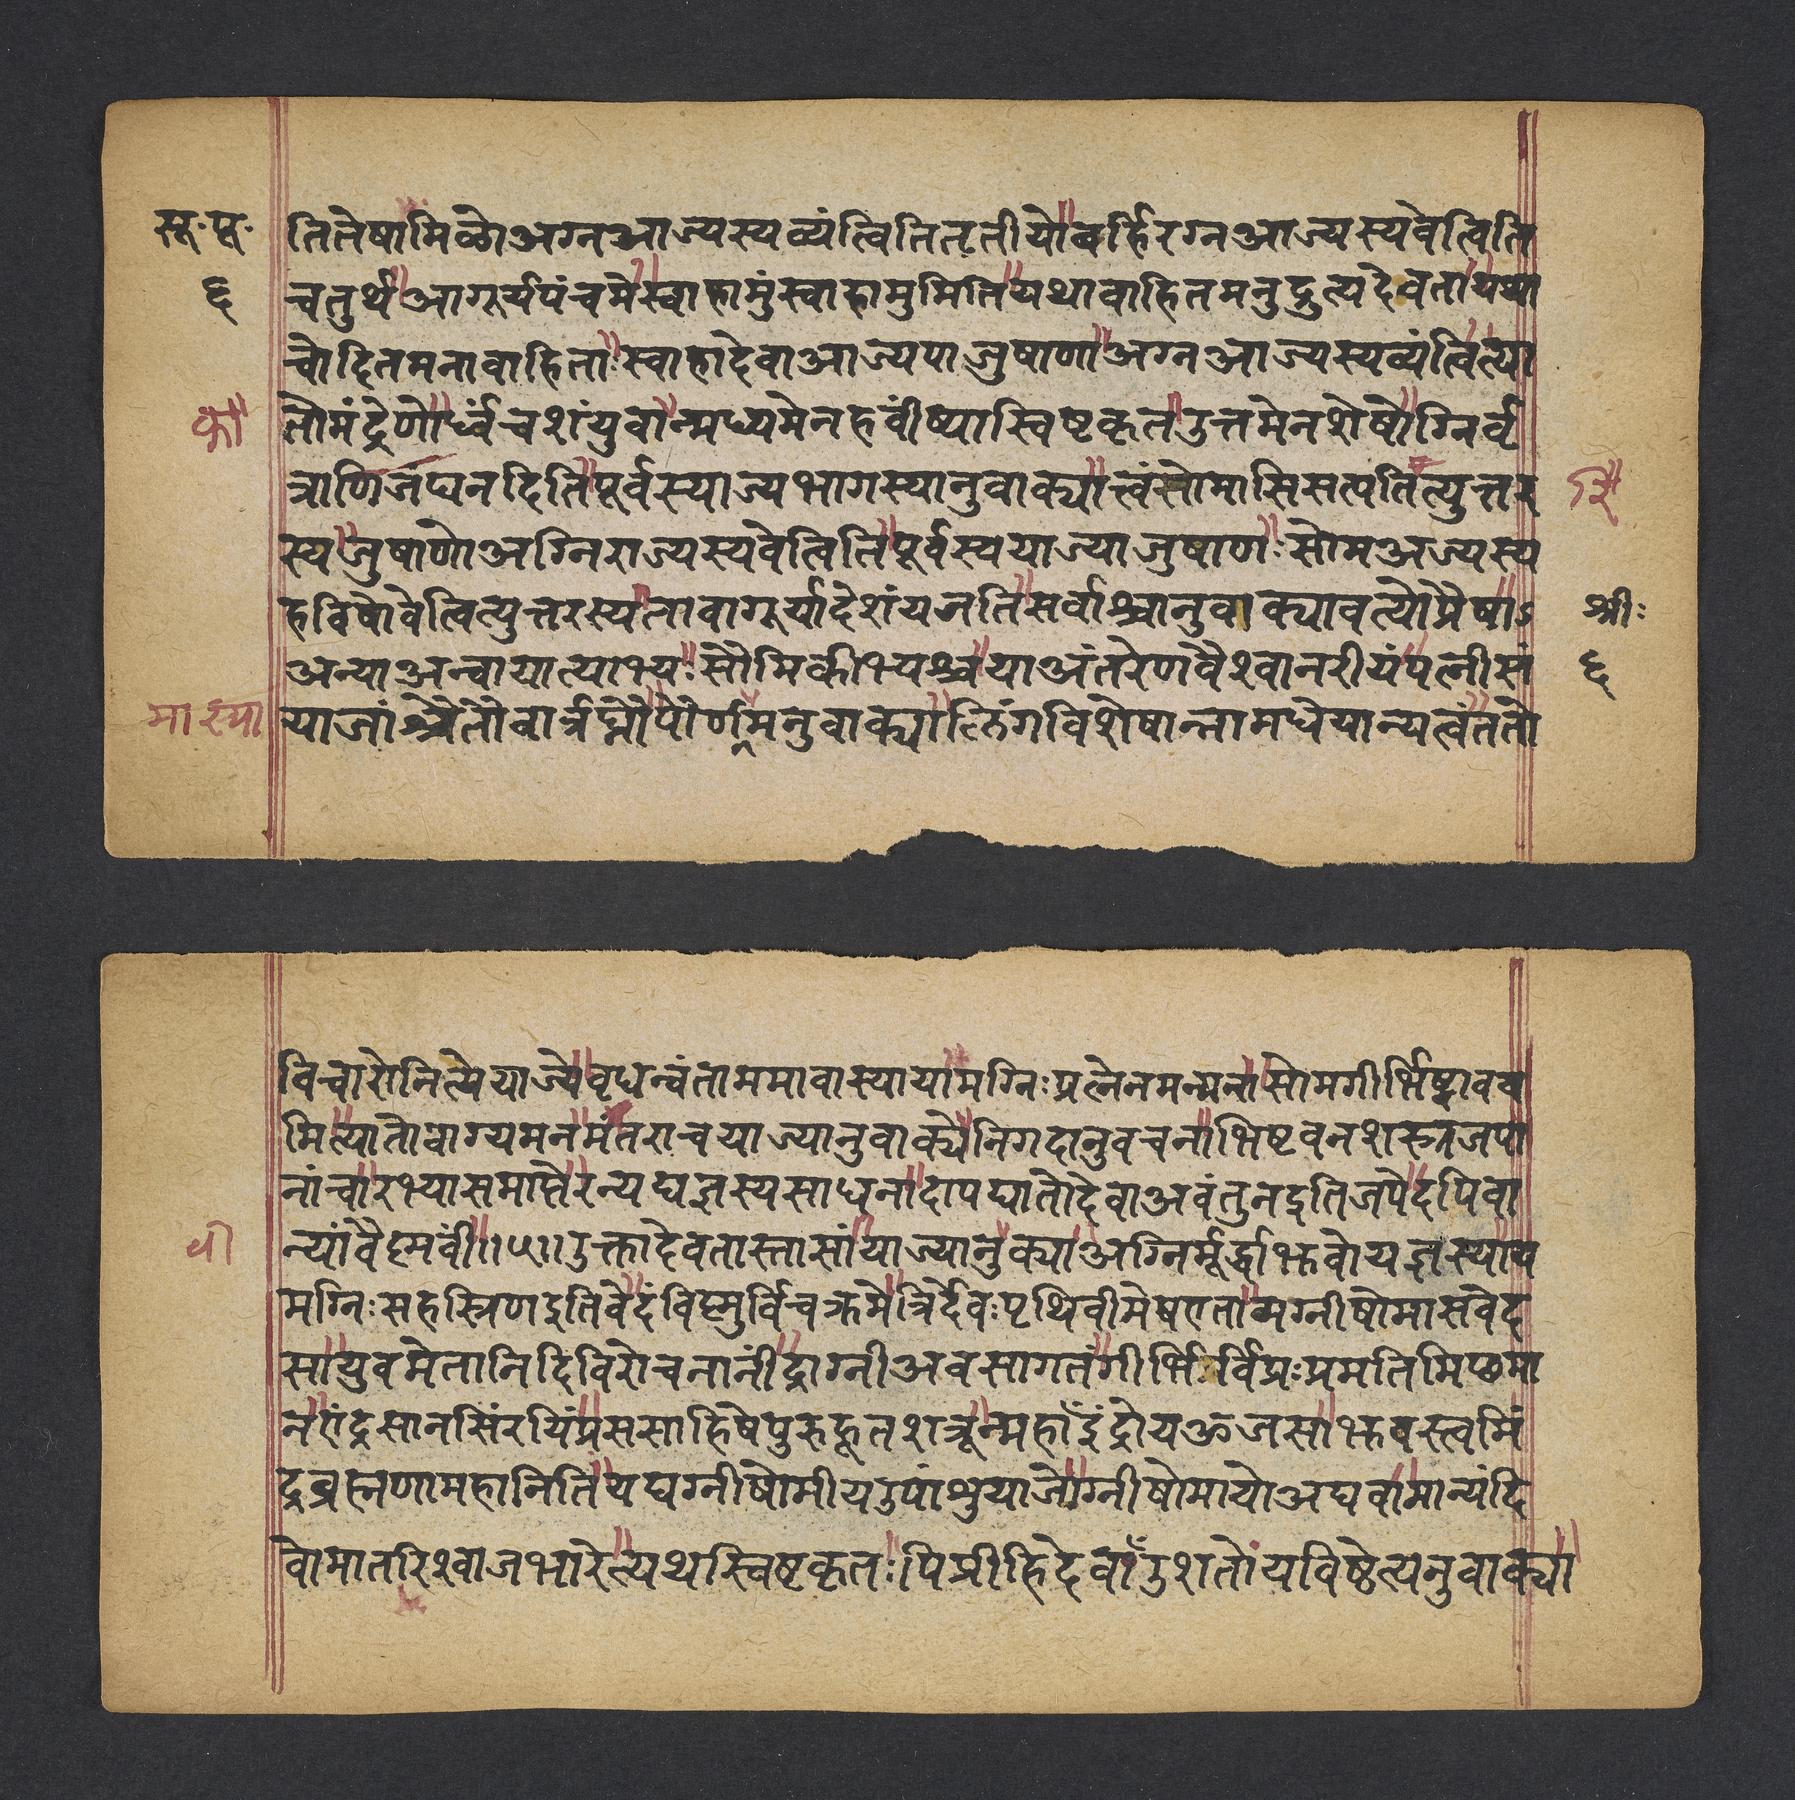 सू॰ पू॰
६
तितेषामिळोअग्नआज्यस्यव्यंत्वितितृतीयोबर्हिरग्नआज्यस्यवेत्विति
चतुर्थआगूर्यपंचमेस्वाहामुंस्वाहामुमितियथावाहितमनुद्रुत्यदेवतायथा
चोदितमनावाहिताःस्वाहादेवाआज्यपाजुषाणाअग्नआज्यस्यव्यंत्वित्या
क्रौ
तोमंद्रेणोर्ध्वंचशंयुवान्मध्यमेनहवींष्यास्विष्टकृतउत्तमेनशेषोग्निर्वृ
त्राणिजंघनदितिपूर्वस्याज्यभागस्यानुवाक्यात्वंसोमासिसत्पतितित्युत्तर
स्यजुषाणोअग्निराज्यस्यवेत्वितिपूर्वस्ययाज्याजुषाणःसोमअज्यस्य
हविषोवेत्वित्युत्तरस्यतावागूर्यादेशंयजतिसर्वाश्चानुवाक्यावत्योप्रैषाऽ
श्रीः
अन्याअन्वायात्याभ्यःसौमिकीभ्यश्चयाअंतरेणवैश्वानरीयंपत्नीसं
६
मास्या
याजांश्चैतौवार्त्रघ्नौपौर्णमनुवाक्यालिंगविशेषान्नामधेयान्यत्वंततो
विचारोनित्येयाज्येवृधन्वंतामममावास्यायामग्निःप्रत्नेनमन्मनासोमगीर्भिष्ट्वावय
मित्यातोवाग्यमनमंतराचयाज्यानुवाक्येनिगदानुवचनाभिष्टवनशस्त्रजपा
नांचारभ्यासमाप्तेरन्यद्यज्ञस्यसाधनादापद्यातोदेवाअवंतुनइतिजपेदपिवा
वी
न्यांवैष्मवीं॥५॥उक्तादेवतास्तासांयाज्यानुक्याअग्निर्मूर्द्धाभुवोयज्ञस्याय
मग्निःसहस्त्रिणइतिवेदंविष्मुर्विचक्रमेत्रिर्देवःपृथिवीमेषएतामग्नीषोमासवेद
सायुवमेतानिदिविरोचनानींद्राग्नीअवसागतंगीर्भिर्विप्रःप्रमतिमिछमा
नएंद्रसानसिंरयिंप्रससाहिषेपुरुहूतशत्रून्महाँइंद्रोयओजसाभुवस्त्वमिं
द्रब्रह्मणामहानितियद्यग्नीषोमीयउपांशुयाजोग्नीषोमायोअद्यवामान्यंदि
वोमातरिश्वाजभारेत्यथस्विष्टकृतःपिप्रीहिदेवाँउशतोयविष्ठेत्यनुवाक्या